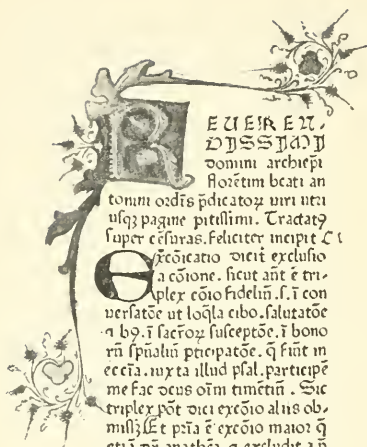 REUEREN-
DISSIMI
domini archiep̄i
florētini beati an
tonini ordīs p̄dicatoꝝ uiri utri
usqꝫ pagine pitissimi. Tractatꝰ
super cēsuras. feliciter incipit C i
Excōicatio dicit̄ exclusio
a cōione. sicut aūt ē tri-
plex cōio fideliū .s. ī con
uersatōe ut loq̄la cibo. salutatōe
⁊ bꝰ. ī sacroꝝ susceptōe. ī bono
rū sp̄ualiū pticipatōe. q̄ fiūt in
eccīa. iuxta illud psal. participē
me fac deus oīm timētiū. Sic
triplex pōt dici excōio aliis ob-
missꝫ Et pria ē excōio maior q̄